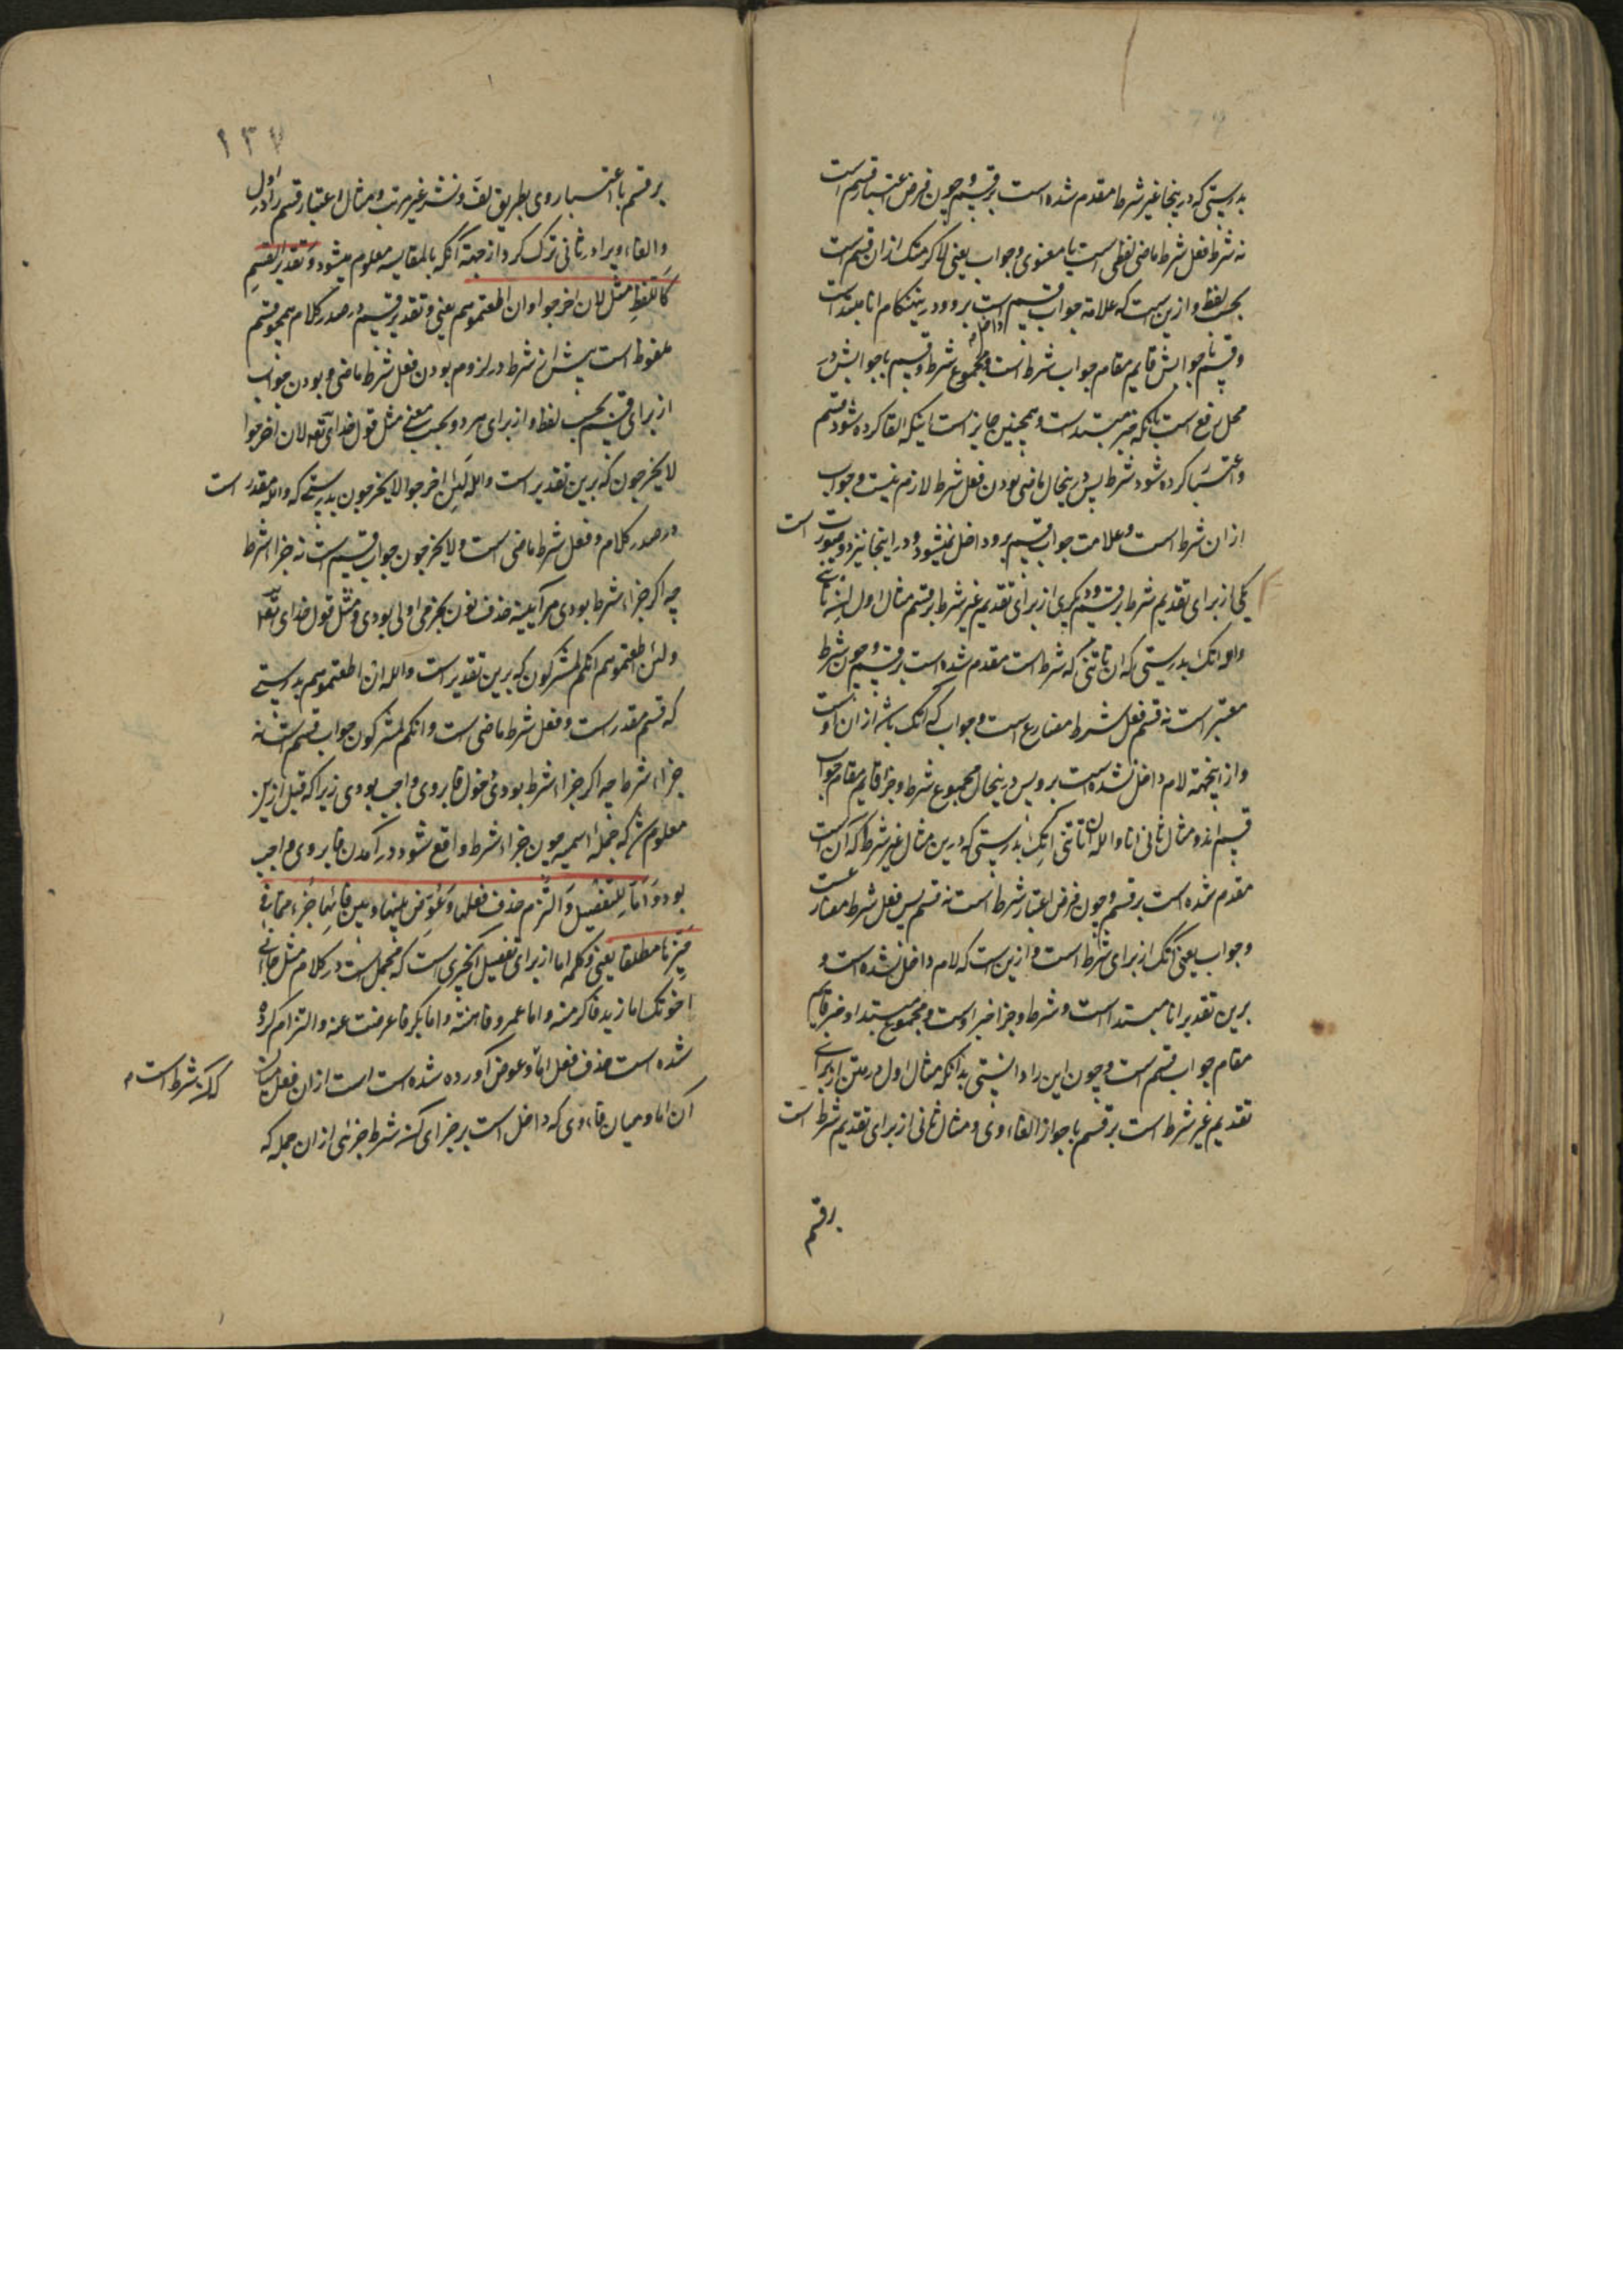 بدرستی که درینجا غیر شرط مقدم شده است بر قسم و چون فرض اعتبار قسم است
نه شرط فعل شرط ماضی لفظی است یا معنوی و جواب یعنی لاکرمتک از ان قسم است
بحسب لفظ و ازین است که علامة جواب قسم است برو داخل و درین هنکام انا مبتداست
و قسم با جوابش قایم مقام جواب شرط است و مجموع شرط و قسم با جوابش در
محل رفع است بانکه خبر مبتداست و همچنین جایز است اینکه القا کرده شود قسم
و اعتبار کرده شود شرط پس درینحال ماضی بودن فعل شرط لازم نیست و جواب
از ان شرط است و علامت جواب قسم برو داخل نمیشود و در اینجا نیز دو صورت است
یکی از برای تقدیم شرط بر قسم و دیکری از برای تقدیم غیر شرط بر قسم مثال اول ان تاتنی
والله اتک بدرستی که ان تاتنی که شرط است مقدم شده است بر قسم و چون شرط
معتبر است نه قسم فعل شرط مضارع است و جواب که اتک باشد از ان اوست
و از اینجهة لام داخل نشده است برو پس درینحال مجموع شرط و جزا قایم مقام جواب
قسم اند و مثال ثانی انا والله ان تاتنی اتک بدرستی که درین مثال غیر شرط که آن انا است
مقدم شده است بر قسم و چون فرض اعتبار شرط است نه قسم پس فعل شرط مضارعست
و جواب یعنی اتک از برای شرط است و ازین است که لام داخل نشده است و
برین تقدیر انا مبتدا است و شرط و جزا خبر اوست و مجموع مبتدا و خبر قایم
مقام جواب قسم است و چون این را دانستی بدانکه مثال اول در متن از برای
تقدیم غیر شرط است بر قسم با جواز الغاء وی و مثال ثانی از برای تقدیم شرط است
بر قسم
۱۳۷
بر قسم با اعتبار وی بطریق لف و نشر غیر مرتب و مثال اعتبار قسم را در اول
و الغاء ویرا در ثانی ترک کرد از جهة آنکه بالمقایسه معلوم میشود وَتقدیر القسمِ
کاللفظِ مثل لان اخرجوا وان اطعتموهم یعنی و تقدیر قسم در صدر کلام همچو قسم
ملفوظ است پیش از شرط در لزوم بودن فعل شرط ماضی و بودن جواب
از برای قسم بحسب لفظ و از برای هر دو بحسب معنی مثل قول خدای تعه لان اخرجوا
لا یخرجون که برین تقدیر است والله لَئِن اخرجوا لا یخرجون بدرستی که والله مقدر است
در صدر کلام و فعل شرط ماضی است و لا یخرجون جواب قسم است نه جزاء شرط
چه اکر جزاء شرط بودی هر آیینه حذف نون بجزمی اولی بودی و مثل قول خدای تعه
ولئن اطعتموهم انکم لمشرکون که برین تقدیر است والله ان اطعتموهم بدرستی
که قسم مقدر است و فعل شرط ماضی است و انکم لمشرکون جواب قسم است نه
جزاء شرط چه اکر جزاء شرط بودی دخول فا بر وی واجب بودی زیرا که قبل ازین
معلوم شد که جمله اسمیه چون جزاء شرط واقع شود در آمدن فا بر وی واجب
بود وَاَمّا للتفصیل وَالتُزم حذف فعلها وَعُوّضَ بینها وبین فائها جُزء مما فی
حَیّزها مطلقا یعنی و کلمه اما از برای تفصیل انچیزی است که مجمل است در کلام مثل جائنی
اخوتک اما زید فاکرمته و اما عمرو فاهنته و اما بکر فاعرضت عنه و التزام کرده
شده است حذف فعل اما و عوض آورده شده است است از ان فعل میان که انکه شرط است
آن اما و میان فاء وی که داخل است بر جزای شرط جزئی از ان جمله که